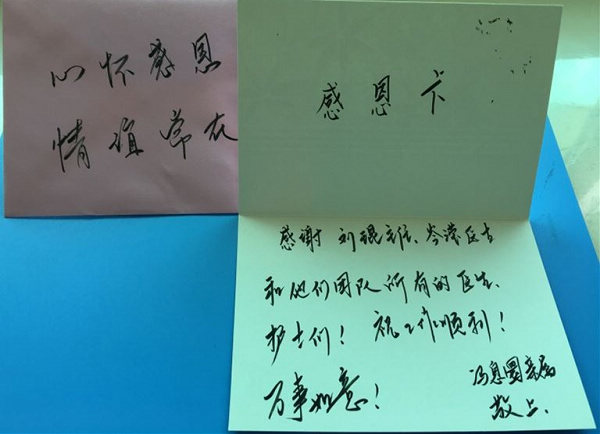 心怀感恩
情谊常在
感恩卡
感谢 刘琨主任、岑滢医生
和他们团队所有的医生、
护士们！祝工作顺利！
万事如意！
冯息国亲属
敬上.